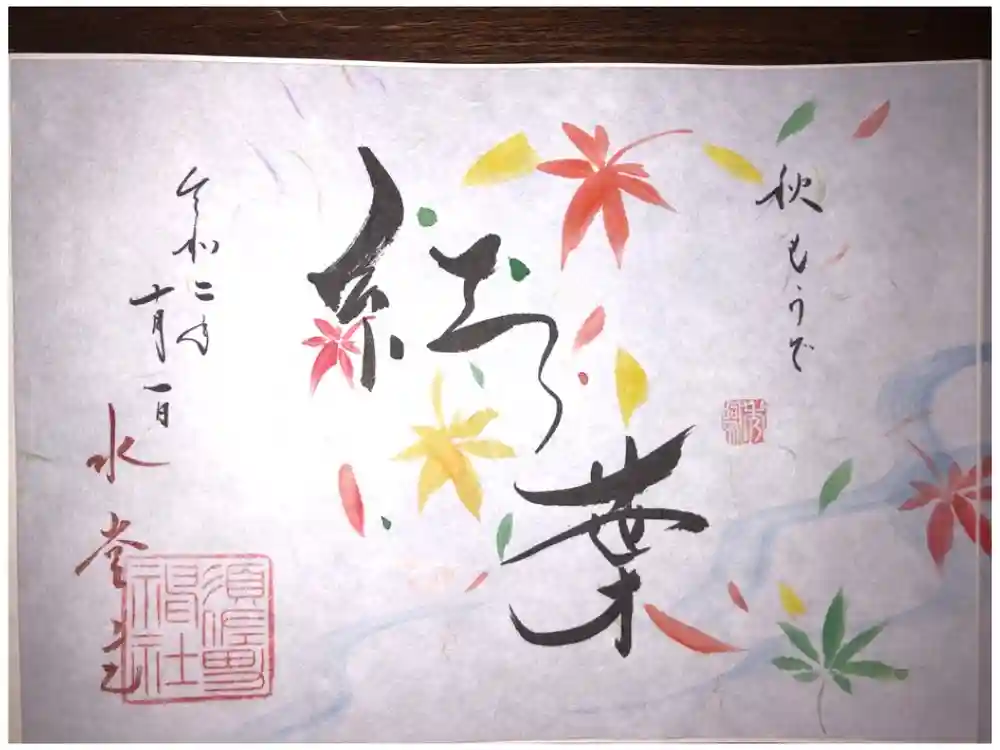 秋もうで
紅葉
令和二年
十月一日
須佐男
神社